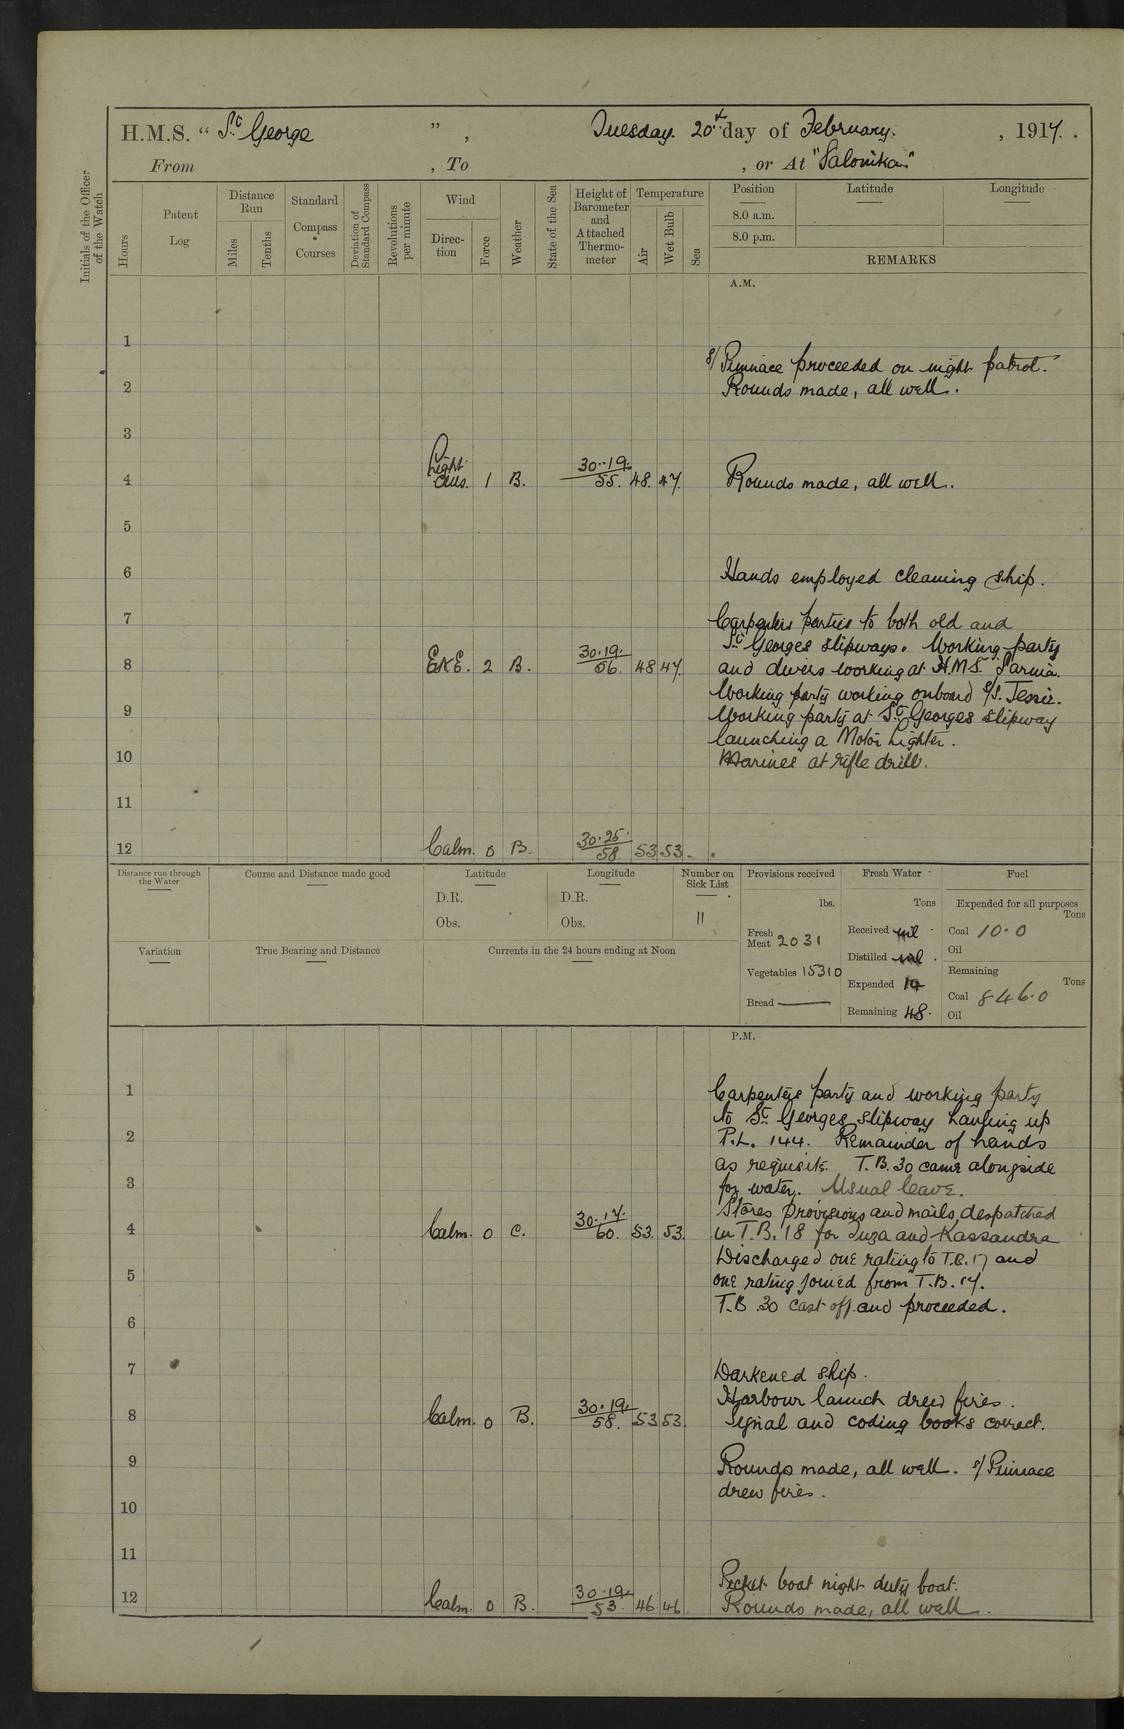 H.M.S. “ St George ” , Tuesday. 20th day of February. , 1917. .
From , To , or At "Salonika."
Initials of the Officer of the Watch
Hours
Patent Log
Distance Run
Miles
Tenths
Standard Compass Courses
Deviation of Standard Compass
Revolutions per minute
Wind
Direction
Force
Weather
State of the Sea
Height of Barometer and Attached Thermometer
Temperature
Air
Wet Bulb
Sea
Position
Latitude
Longitude
8.0 a.m.
8.0 p.m.
REMARKS
A.M.
1
s/ Pinnace proceeded on night patrol.
2
Rounds made, all well.
3
4 Light airs. 1 B. 30.19. 55. 48. 47. Rounds made, all well.
5
6 Hands employed cleaning ship.
7 Carpenters parties to both old and
St Georges slipways. Working party
8 E×E. 2 B. 30.19. 56. 48 47. and divers working at H.M.S.
Working party working onboard s/s. Jessie.
9 Working party at St Georges slipway
launching a Motor Lighter.
10 Marines at rifle drill.
11
12 Calm. 0 B. 30.25. 58. 53 53.
Distance run through the Water
Course and Distance made good
Latitude
D.R.
Obs.
Longitude
D.R.
Obs.
Number on Sick List
11
Provisions received
lbs.
Fresh Meat 2031
Vegetables 15310
Bread —
Fresh Water
Tons
Received nil
Distilled nil
Expended 14
Remaining 48.
Fuel
Expended for all purposes
Tons
Coal 10.0
Oil
Remaining
Tons
Coal 846.0
Oil
Variation
True Bearing and Distance
Currents in the 24 hours ending at Noon
P.M.
1 Carpenters party and working party
to St Georges slipway hauling up
2 P.L. 144. Remainder of hands
as requisite. T.B. 30 came alongside
3 for water. Usual leave.
Stores provisions and mails despatched
4 Calm. 0 C. 30.17. 60. 53. 53. in T.B. 18 for Tuza and Kassandra
Discharged one rating to T.B. 17 and
5 one rating joined from T.B. 17.
T.B 30 cast off and proceeded.
6
7 Darkened ship.
Harbour launch drew fires.
8 Calm. 0 B. 30.19. 58. 53 53. Signal and coding books correct.
9 Rounds made, all well. s/ Pinnace
drew fires.
10
11
Picket boat night duty boat.
12 Calm. 0 B. 30.19. 53. 46. 46. Rounds made, all well.